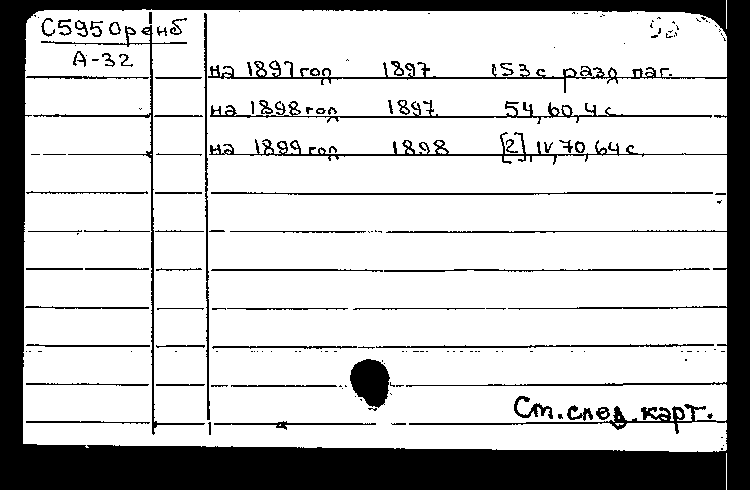 С595 Оренб
А-32
на 1897 год 1897. 153 с. разд. паг.
на 1898 год 1897. 54, 60, 4 с.
на 1899 год 1898 [2], IV, 70, 64 с.
См. след. карт.